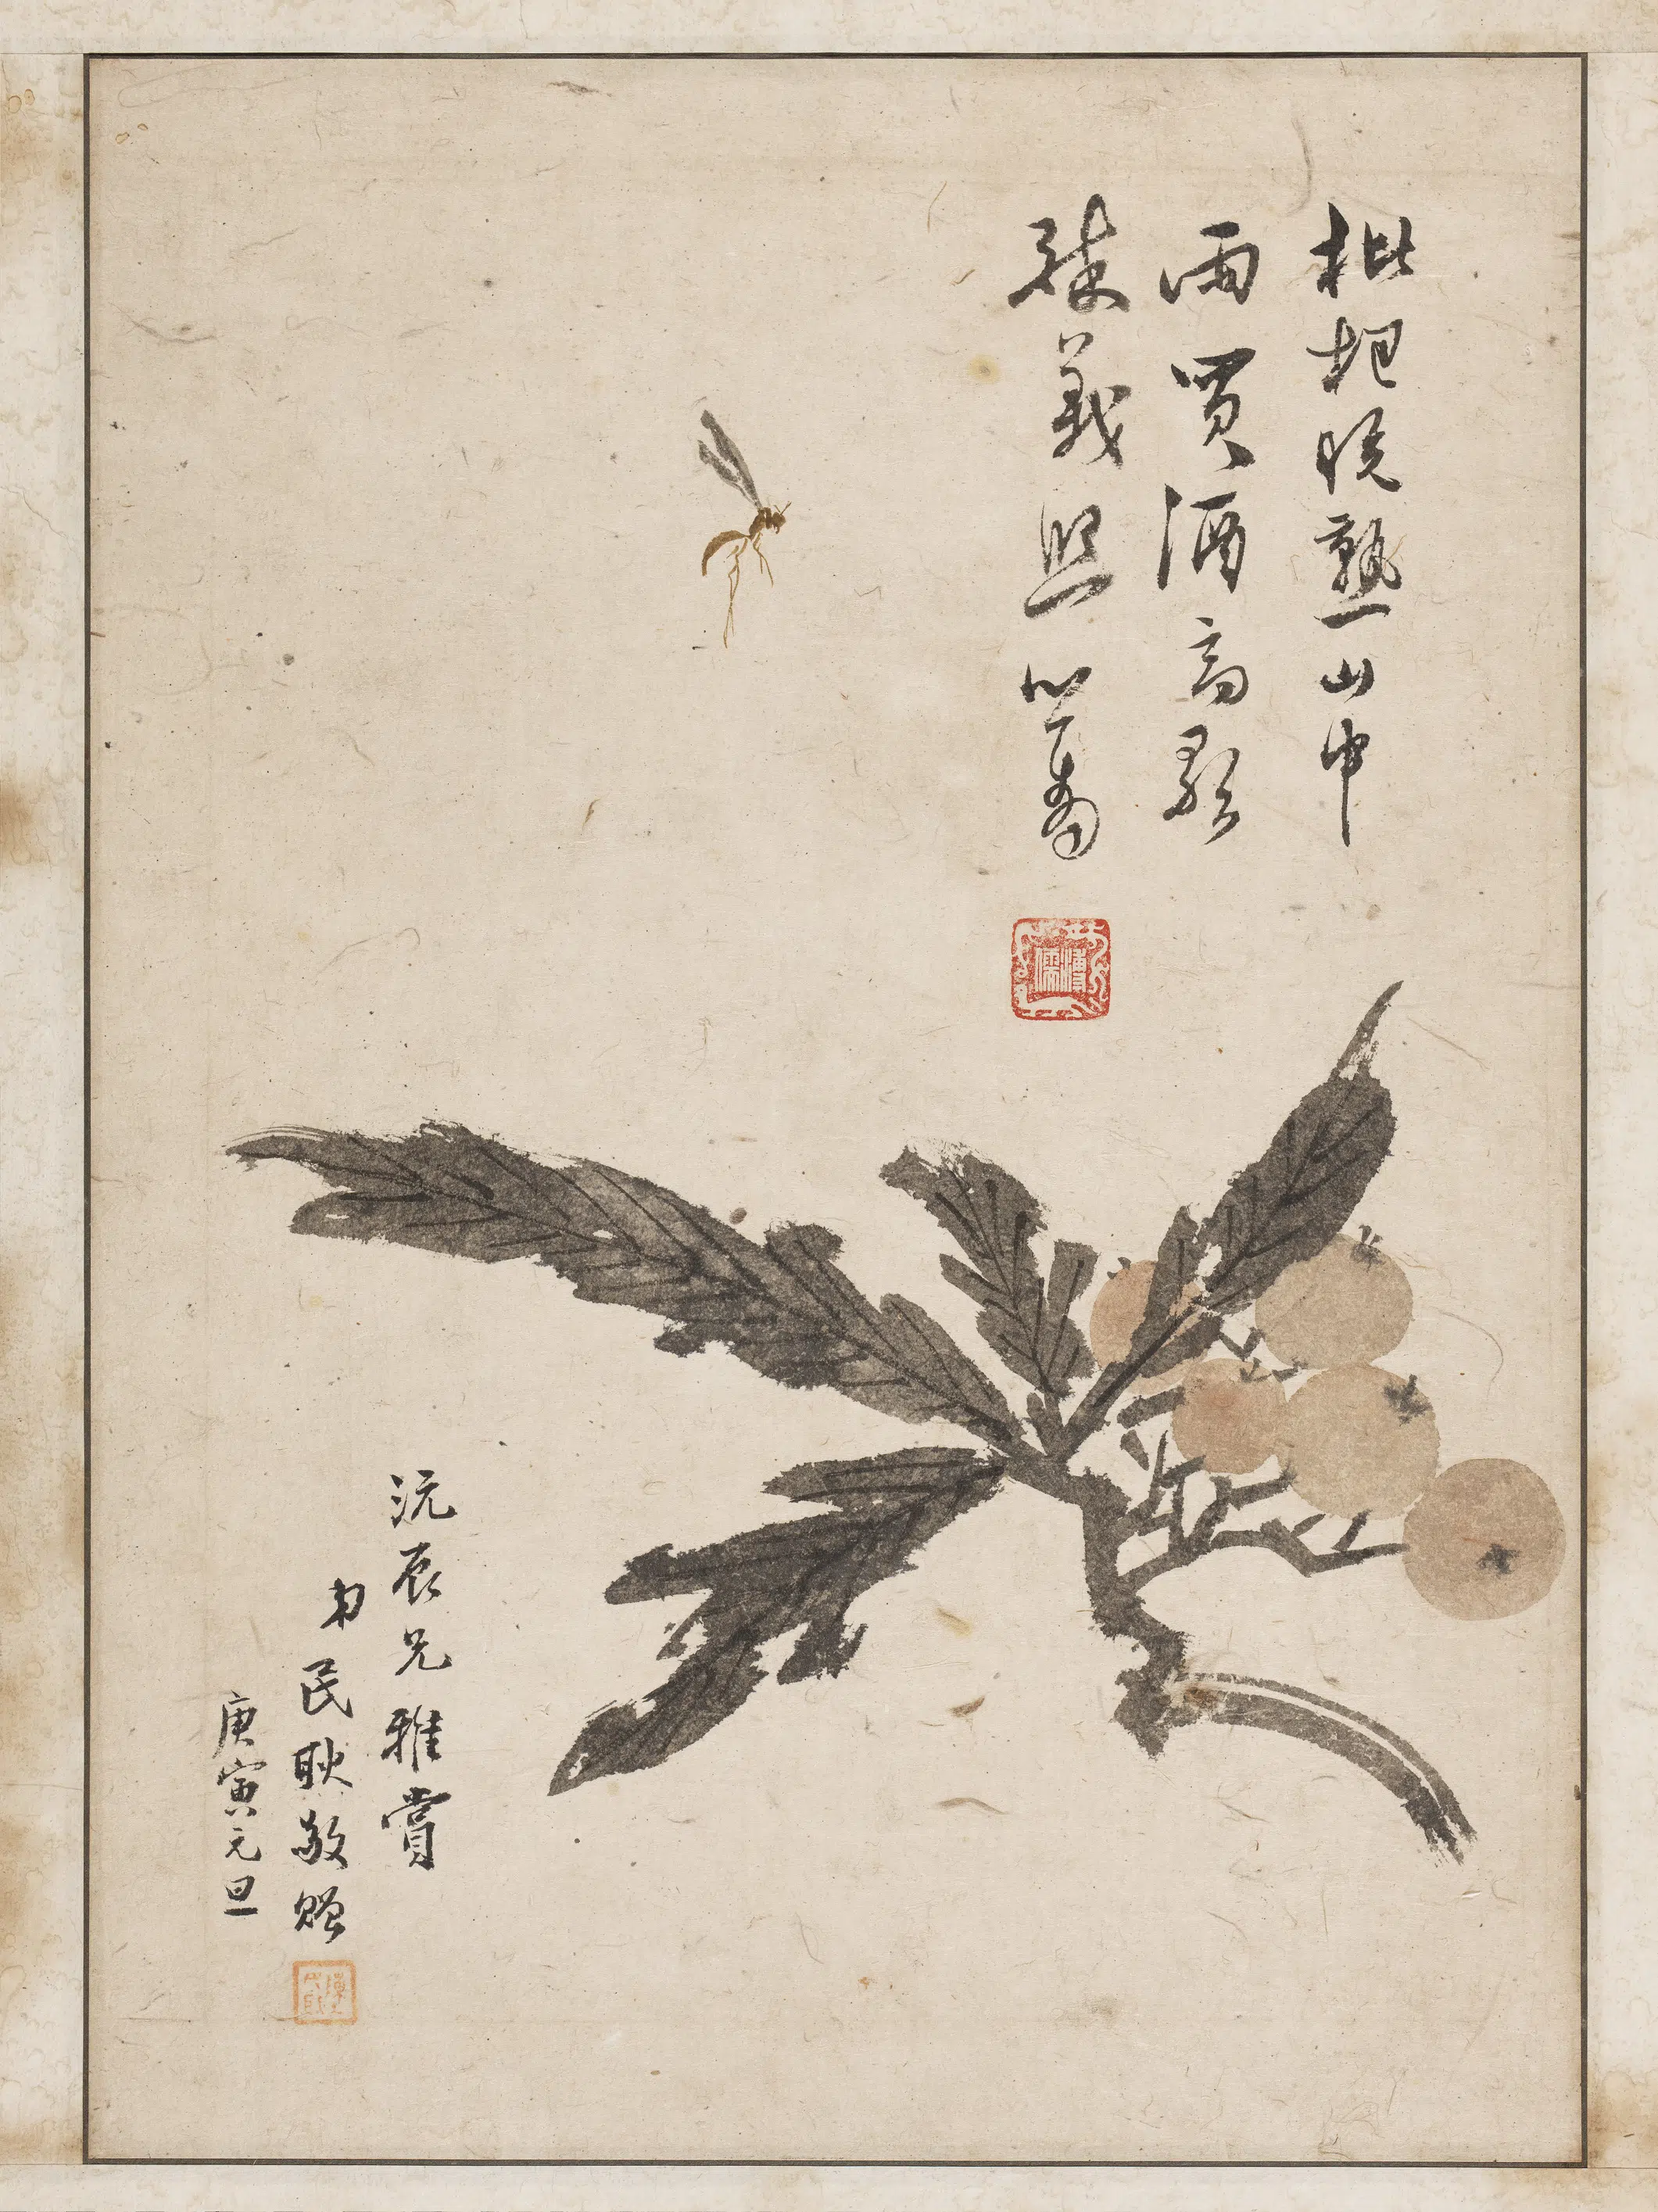 枇杷晚熟山中
雨買酒高歌
義熙 心畬
溥儒
沅辰兄雅賞
弟民耿敬贈
庚寅元旦